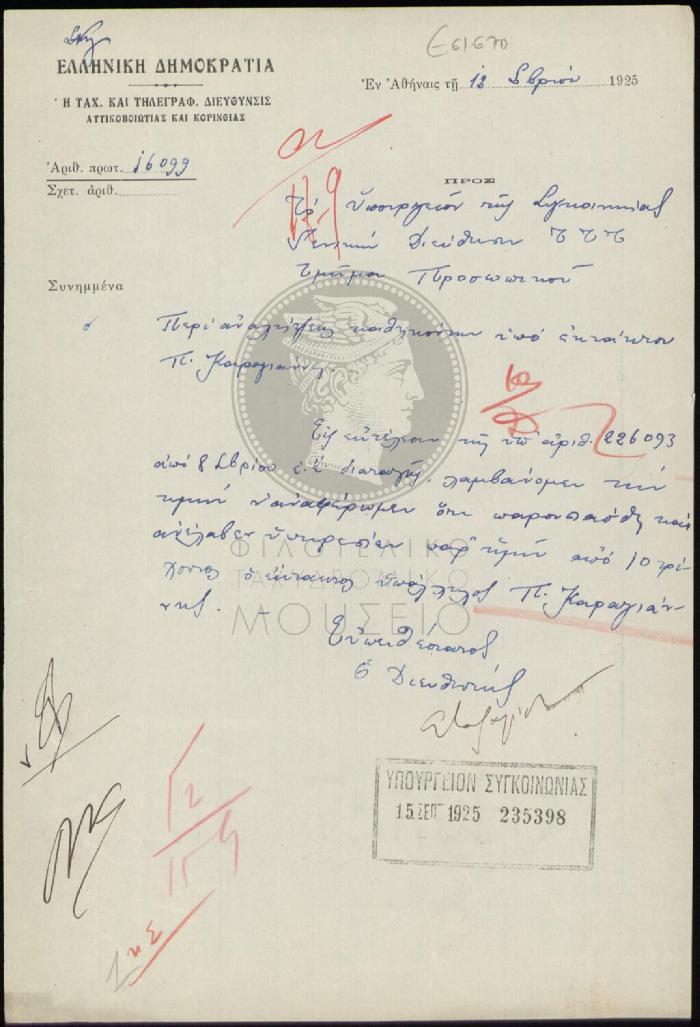 Ε 61.670
ΕΛΛΗΝΙΚΗ ΔΗΜΟΚΡΑΤΙΑ
Ἡ ΤΑΧ. ΚΑΙ ΤΗΛΕΓΡΑΦ. ΔΙΕΥΘΥΝΣΙΣ
ΑΤΤΙΚΟΒΟΙΩΤΙΑΣ ΚΑΙ ΚΟΡΙΝΘΙΑΣ
Ἐν Ἀθήναις τῇ 12 7βρίου 1925
Ἀριθ. πρωτ. 16099
Σχετ. ἀριθ.
ΠΡΟΣ
Τὸ Ὑπουργεῖον τῆς Συγκοινωνίας
Γενικὴν Διεύθυνσιν Τ Τ Τ
Τμῆμα Προσωπικοῦ
Συνημμένα
Περὶ ἀναλήψεως καθηκόντων ὑπὸ ἐκτάκτου
Π. Καραγιάννη.
Εἰς ἐκτέλεσιν τῆς ὑπ' ἀριθ. 226093
ἀπὸ 8 7βρίου ἐ.ἔ. διαταγῆς, λαμβάνομεν τὴν
τιμὴν ν' ἀναφέρωμεν ὅτι παρουσιάσθη καὶ
ἀνέλαβεν ὑπηρεσίαν παρ' ἡμῖν ἀπὸ 10 τρέ-
χοντος ὁ ἔκτακτος ὑπάλληλος Π. Καραγιάν-
νης. —
Εὐπειθέστατος
Ὁ Διευθυντής
ΦΙΛΟΤΕΛΙΚΟ
ΤΑΧΥΔΡΟΜΙΚΟ
ΜΟΥΣΕΙΟ
ΥΠΟΥΡΓΕΙΟΝ ΣΥΓΚΟΙΝΩΝΙΑΣ
15 ΣΕΠ 1925 235398
12
15-9